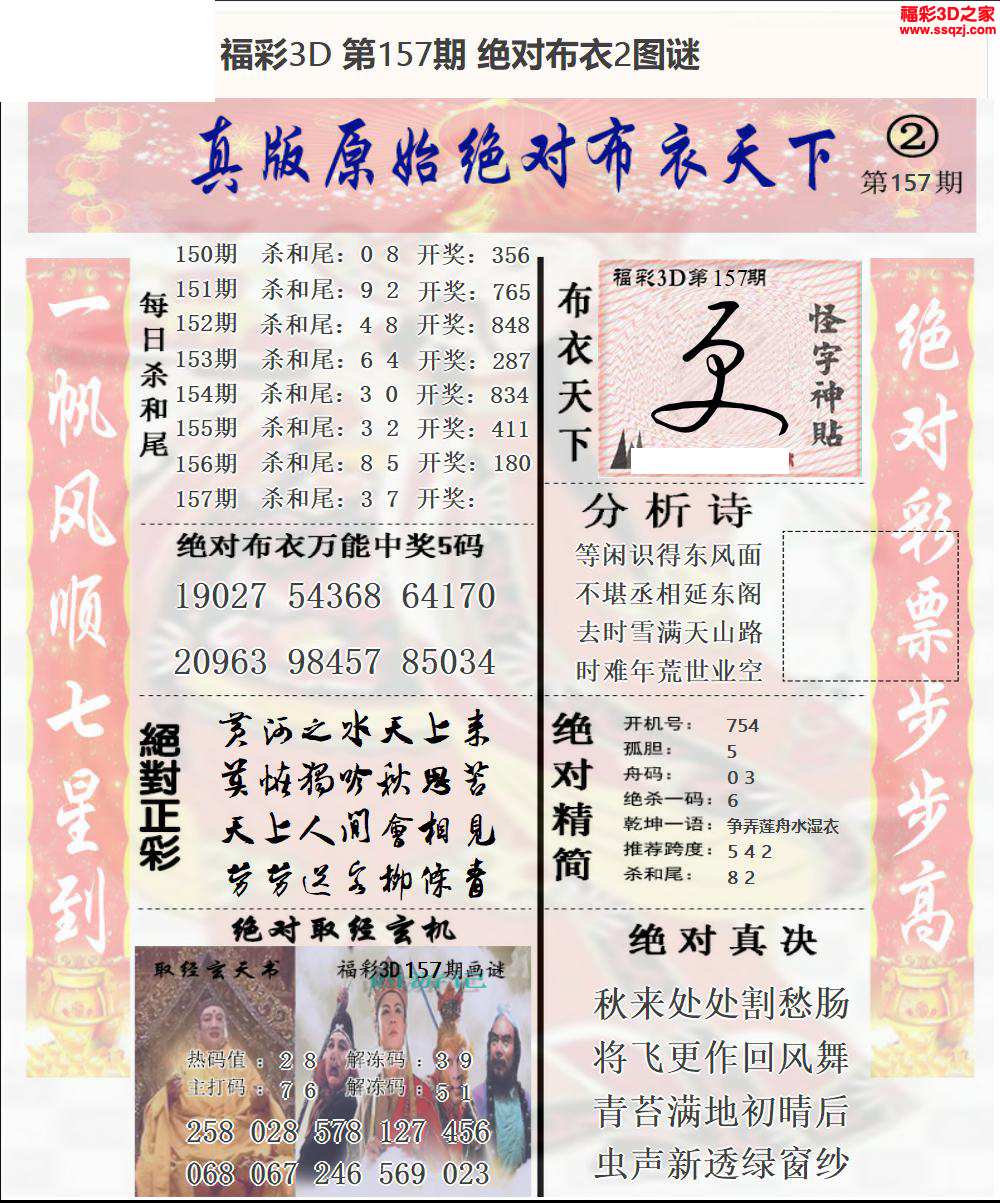 福彩3D之家
www.ssqzj.com
福彩3D 第157期 绝对布衣2图谜
真版原始绝对布衣天下
②
第157期
一帆风顺七星到
每日杀和尾
150期 杀和尾：0 8 开奖：356
151期 杀和尾：9 2 开奖：765
152期 杀和尾：4 8 开奖：848
153期 杀和尾：6 4 开奖：287
154期 杀和尾：3 0 开奖：834
155期 杀和尾：3 2 开奖：411
156期 杀和尾：8 5 开奖：180
157期 杀和尾：3 7 开奖：
绝对布衣万能中奖5码
19027 54368 64170
20963 98457 85034
絕對正彩
黄河之水天上来
莫怪獨吟秋思苦
天上人间會相見
劳劳送客柳條青
绝对取经玄机
取经玄天书
福彩3D157期画谜
热码值：2 8 解冻码：3 9
主打码：7 6 解冻码：5 1
258 028 578 127 456
068 067 246 569 023
布衣天下
福彩3D第157期
怪字神貼
分析诗
等闲识得东风面
不堪丞相延东阁
去时雪满天山路
时难年荒世业空
绝对精简
开机号：754
孤胆：5
舟码：0 3
绝杀一码：6
乾坤一语：争弄莲舟水湿衣
推荐跨度：5 4 2
杀和尾：8 2
绝对真决
秋来处处割愁肠
将飞更作回风舞
青苔满地初晴后
虫声新透绿窗纱
绝对彩票步步高